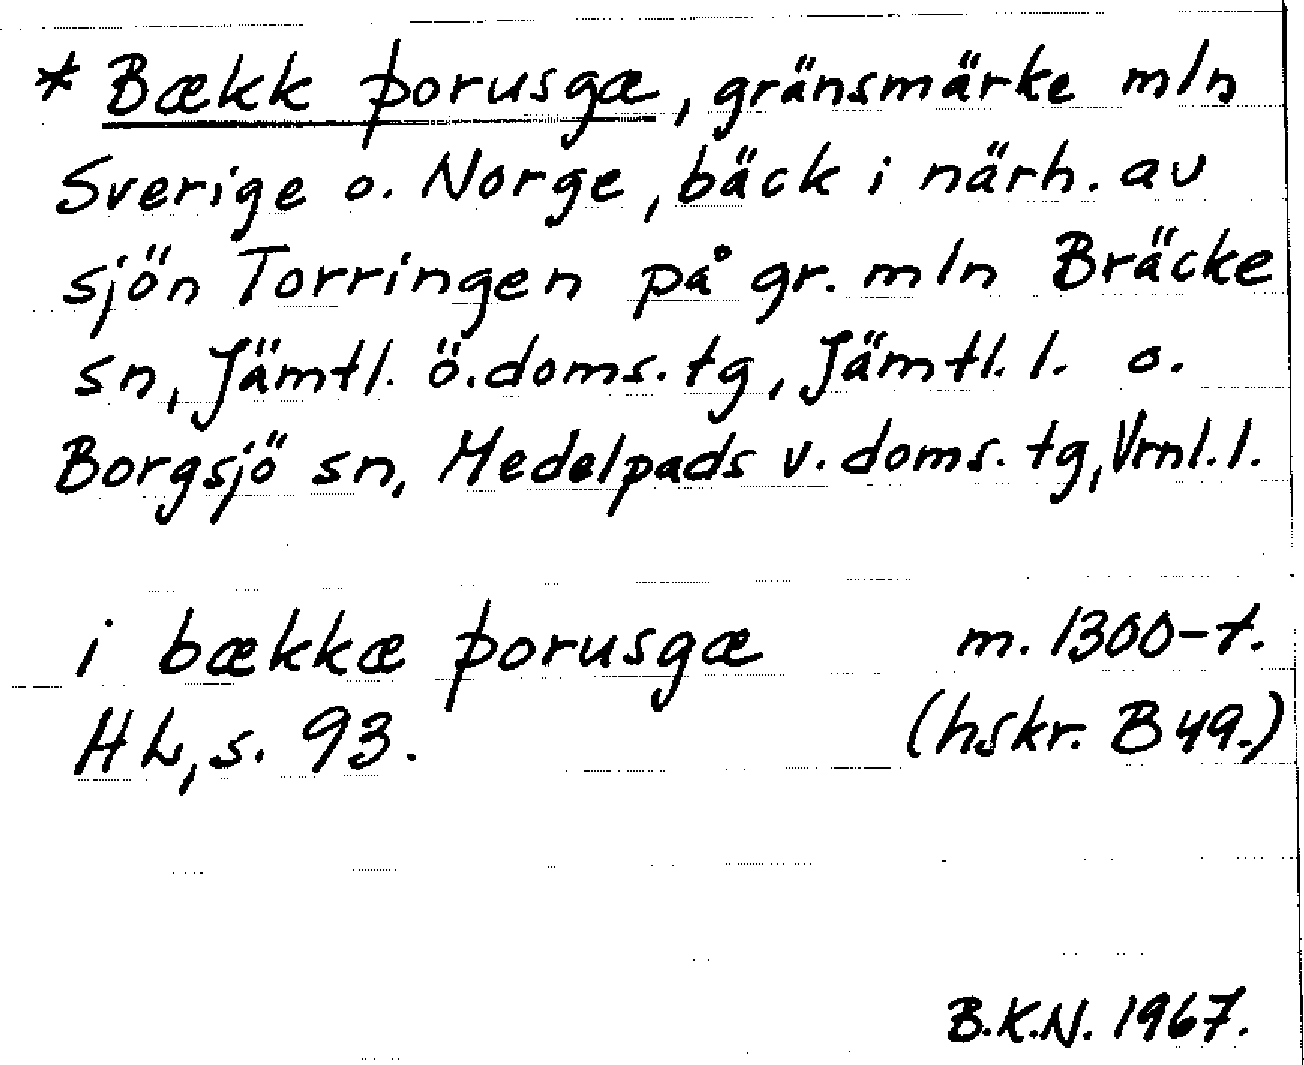 * Bækk þorusgæ, gränsmärke mln
Sverige o. Norge, bäck i närh. av
sjön Torringen på gr. mln Bräcke
sn, Jämtl. ö. doms. tg, Jämtl. l. o.
Borgsjö sn, Medelpads v. doms. tg, Vrnl. l.
i bækkæ þorusgæ m. 1300-t.
HL, s. 93. (hskr. B 49.)
B.K.N. 1967.